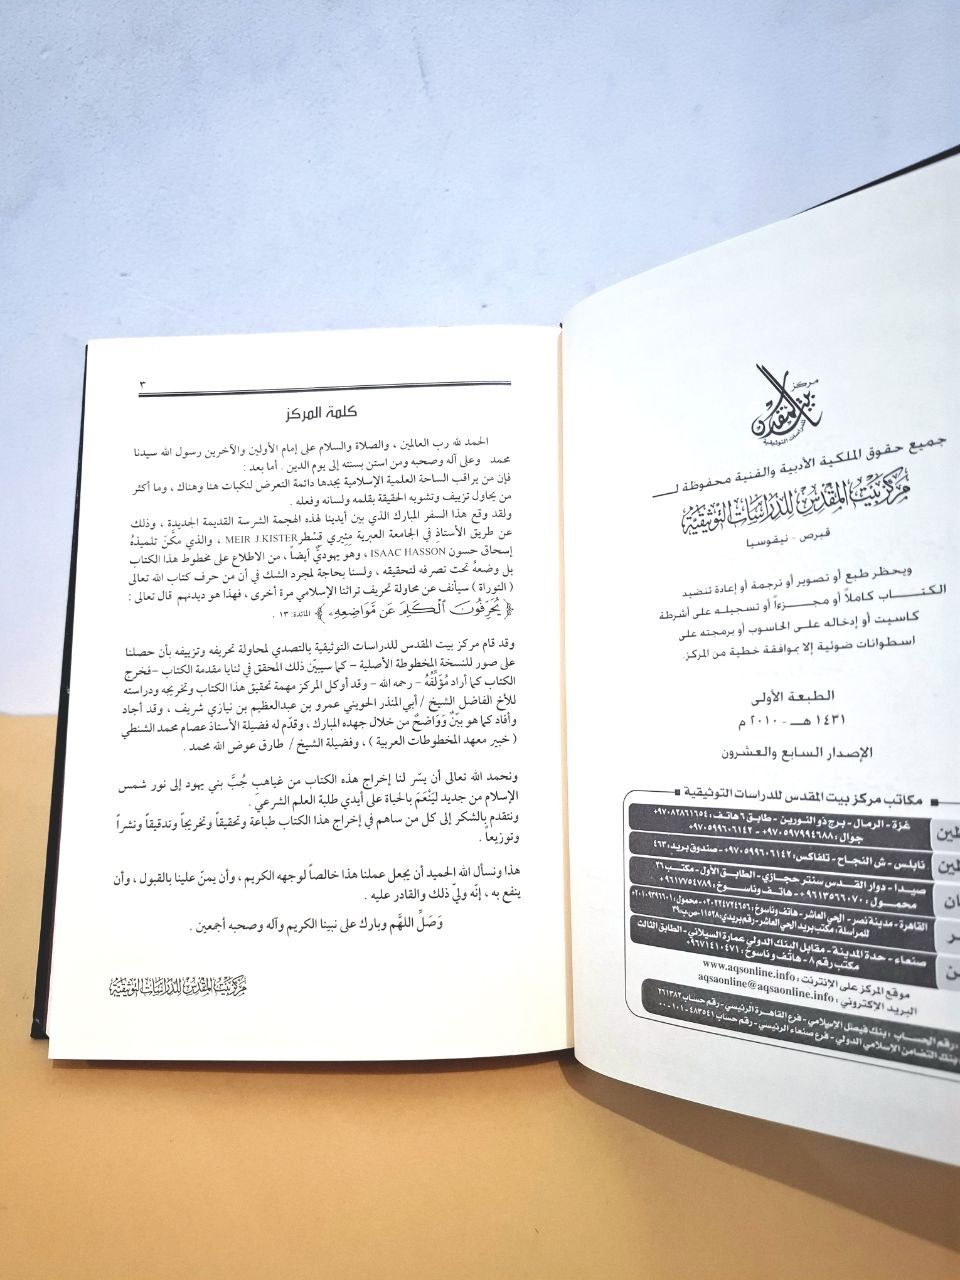 مركز
بيت المقدس
للدراسات التوثيقية
جميع حقوق الملكية الأدبية والفنية محفوظة لـــ
مركز بيت المقدس للدراسات التوثيقية
قبرص - نيقوسيا
ويحظر طبع أو تصوير أو ترجمة أو إعادة تنضيد
الكتـــاب كاملاً أو مجـــزءاً أو تسجيلـه على أشرطة
كاسيت أو إدخاله على الحاسوب أو برمجته على
اسطوانات ضوئية إلا بموافقة خطية من المركز.
الطبعة الأولى
١٤٣١ هـــ - ٢٠١٠ م
الإصدار السابع والعشرون
مكاتب مركز بيت المقدس للدراسات التوثيقية
غزة - الرمال - برج ذو النورين - طابق ٦ هاتف: ٩٧٠٨٢٨٦١٦٥٤+
جوال: ٩٧٠٥٩٧٩٩٤٦٨٨+ - ٩٧٠٥٩٩٦٠٦١٤٢+
نابلس - ش النجاح - تلفاكس: ٩٧٠٥٩٩٦٠٦١٤٢+ - صندوق بريد: ٤٦٣
صيدا - دوار القدس سنتر حجازي - الطابق الأول - مكتب ٢٦
محمول: ٩٦١٣٥٦٦٠٧٠+ - هاتف وناسوخ: ٩٦١٧٧٥٤٧٨٩+
القاهرة - مدينة نصر - الحي العاشر - هاتف وناسوخ: ٢٠٢٢٤٧٢٤٦٥٦+ - محمول: ٢٠١٠٩٣٩٦٦٠١+
للمراسلة: مكتب بريد الحي العاشر - رقم بريدي: ١١٥٢٨ - ص.ب ٣٩
صنعاء - حدة المدينة - مقابل البنك الدولي عمارة السيلاني - الطابق الثالث
مكتب رقم ٨ - هاتف وناسوخ: ٩٦٧١٤١٠٤٧١+
موقع المركز على الإنترنت: www.aqsonline.info
البريد الإلكتروني: aqsaonline@aqsaonline.info
رقم الحساب: بنك فيصل الإسلامي - فرع القاهرة الرئيسي - رقم حساب ٢٦١٣٨٢
بنك التضامن الإسلامي الدولي - فرع صنعاء الرئيسي - رقم حساب
٣
كلمة المركز
الحمد لله رب العالمين ، والصلاة والسلام على إمام الأولين والآخرين رسول الله سيدنا
محمد وعلى آله وصحبه ومن استن بسنته إلى يوم الدين . أما بعد :
فإن من يراقب الساحة العلمية الإسلامية يجدها دائمة التعرض لنكبات هنا وهناك ، وما أكثر
من يحاول تزييف وتشويه الحقيقة بقلمه ولسانه وفعله .
ولقد وقع هذا السفر المبارك الذي بين أيدينا لهذه الهجمة الشرسة القديمة الجديدة ، وذلك
عن طريق الأستاذ في الجامعة العبرية مئيري قِسْطر MEIR J.KISTER ، والذي مكَّنَ تلميذهُ
إسحاق حسون ISAAC HASSON ، وهو يهوديٌّ أيضاً ، من الاطلاع على مخطوط هذا الكتاب
بل وضعهُ تحت تصرفه لتحقيقه ، ولسنا بحاجة لمجرد الشك في أن من حرف كتاب الله تعالى
( التوراة ) سيأنف عن محاولة تحريف تراثنا الإسلامي مرة أخرى ، فهذا هو ديدنهم قال تعالى :
﴿ يُحَرِّفُونَ ٱلْكَلِمَ عَن مَّوَاضِعِهِۦ ﴾ المائدة: ١٣ .
وقد قام مركز بيت المقدس للدراسات التوثيقية بالتصدي لمحاولة تحريفه وتزييفه بأن حصلنا
على صور للنسخة المخطوطة الأصلية – كما سيبيّن ذلك المحقق في ثنايا مقدمة الكتاب – فخرج
الكتاب كما أراد مُؤَلِّفُهُ – رحمه الله – وقد أوكل المركز مهمة تحقيق هذا الكتاب وتخريجه ودراسته
للأخ الفاضل الشيخ / أبي المنذر الحويني عمرو بن عبدالعظيم بن نيازي شريف ، وقد أجاد
وأفاد كما هو بيّنٌ وَوَاضحٌ من خلال جهده المبارك ، وقدّم له فضيلة الأستاذ عصام محمد الشنطي
( خبير معهد المخطوطات العربية ) ، وفضيلة الشيخ / طارق عوض الله محمد .
ونحمد الله تعالى أن يسّر لنا إخراج هذه الكتاب من غياهب جُبَّ بني يهود إلى نور شمس
الإسلام من جديد ليَنْعَمَ بالحياة على أيدي طلبة العلم الشرعي .
ونتقدم بالشكر إلى كل من ساهم في إخراج هذا الكتاب طباعة وتحقيقاً وتخريجاً وتدقيقاً ونشراً
وتوزيعاً .
هذا ونسأل الله الحميد أن يجعل عملنا هذا خالصاً لوجهه الكريم ، وأن يمنّ علينا بالقبول ، وأن
ينفع به ، إنّه وليّ ذلك والقادر عليه .
وَصَلِّ اللَّهم وبارك على نبينا الكريم وآله وصحبه أجمعين .
مركز بيت المقدس للدراسات التوثيقية